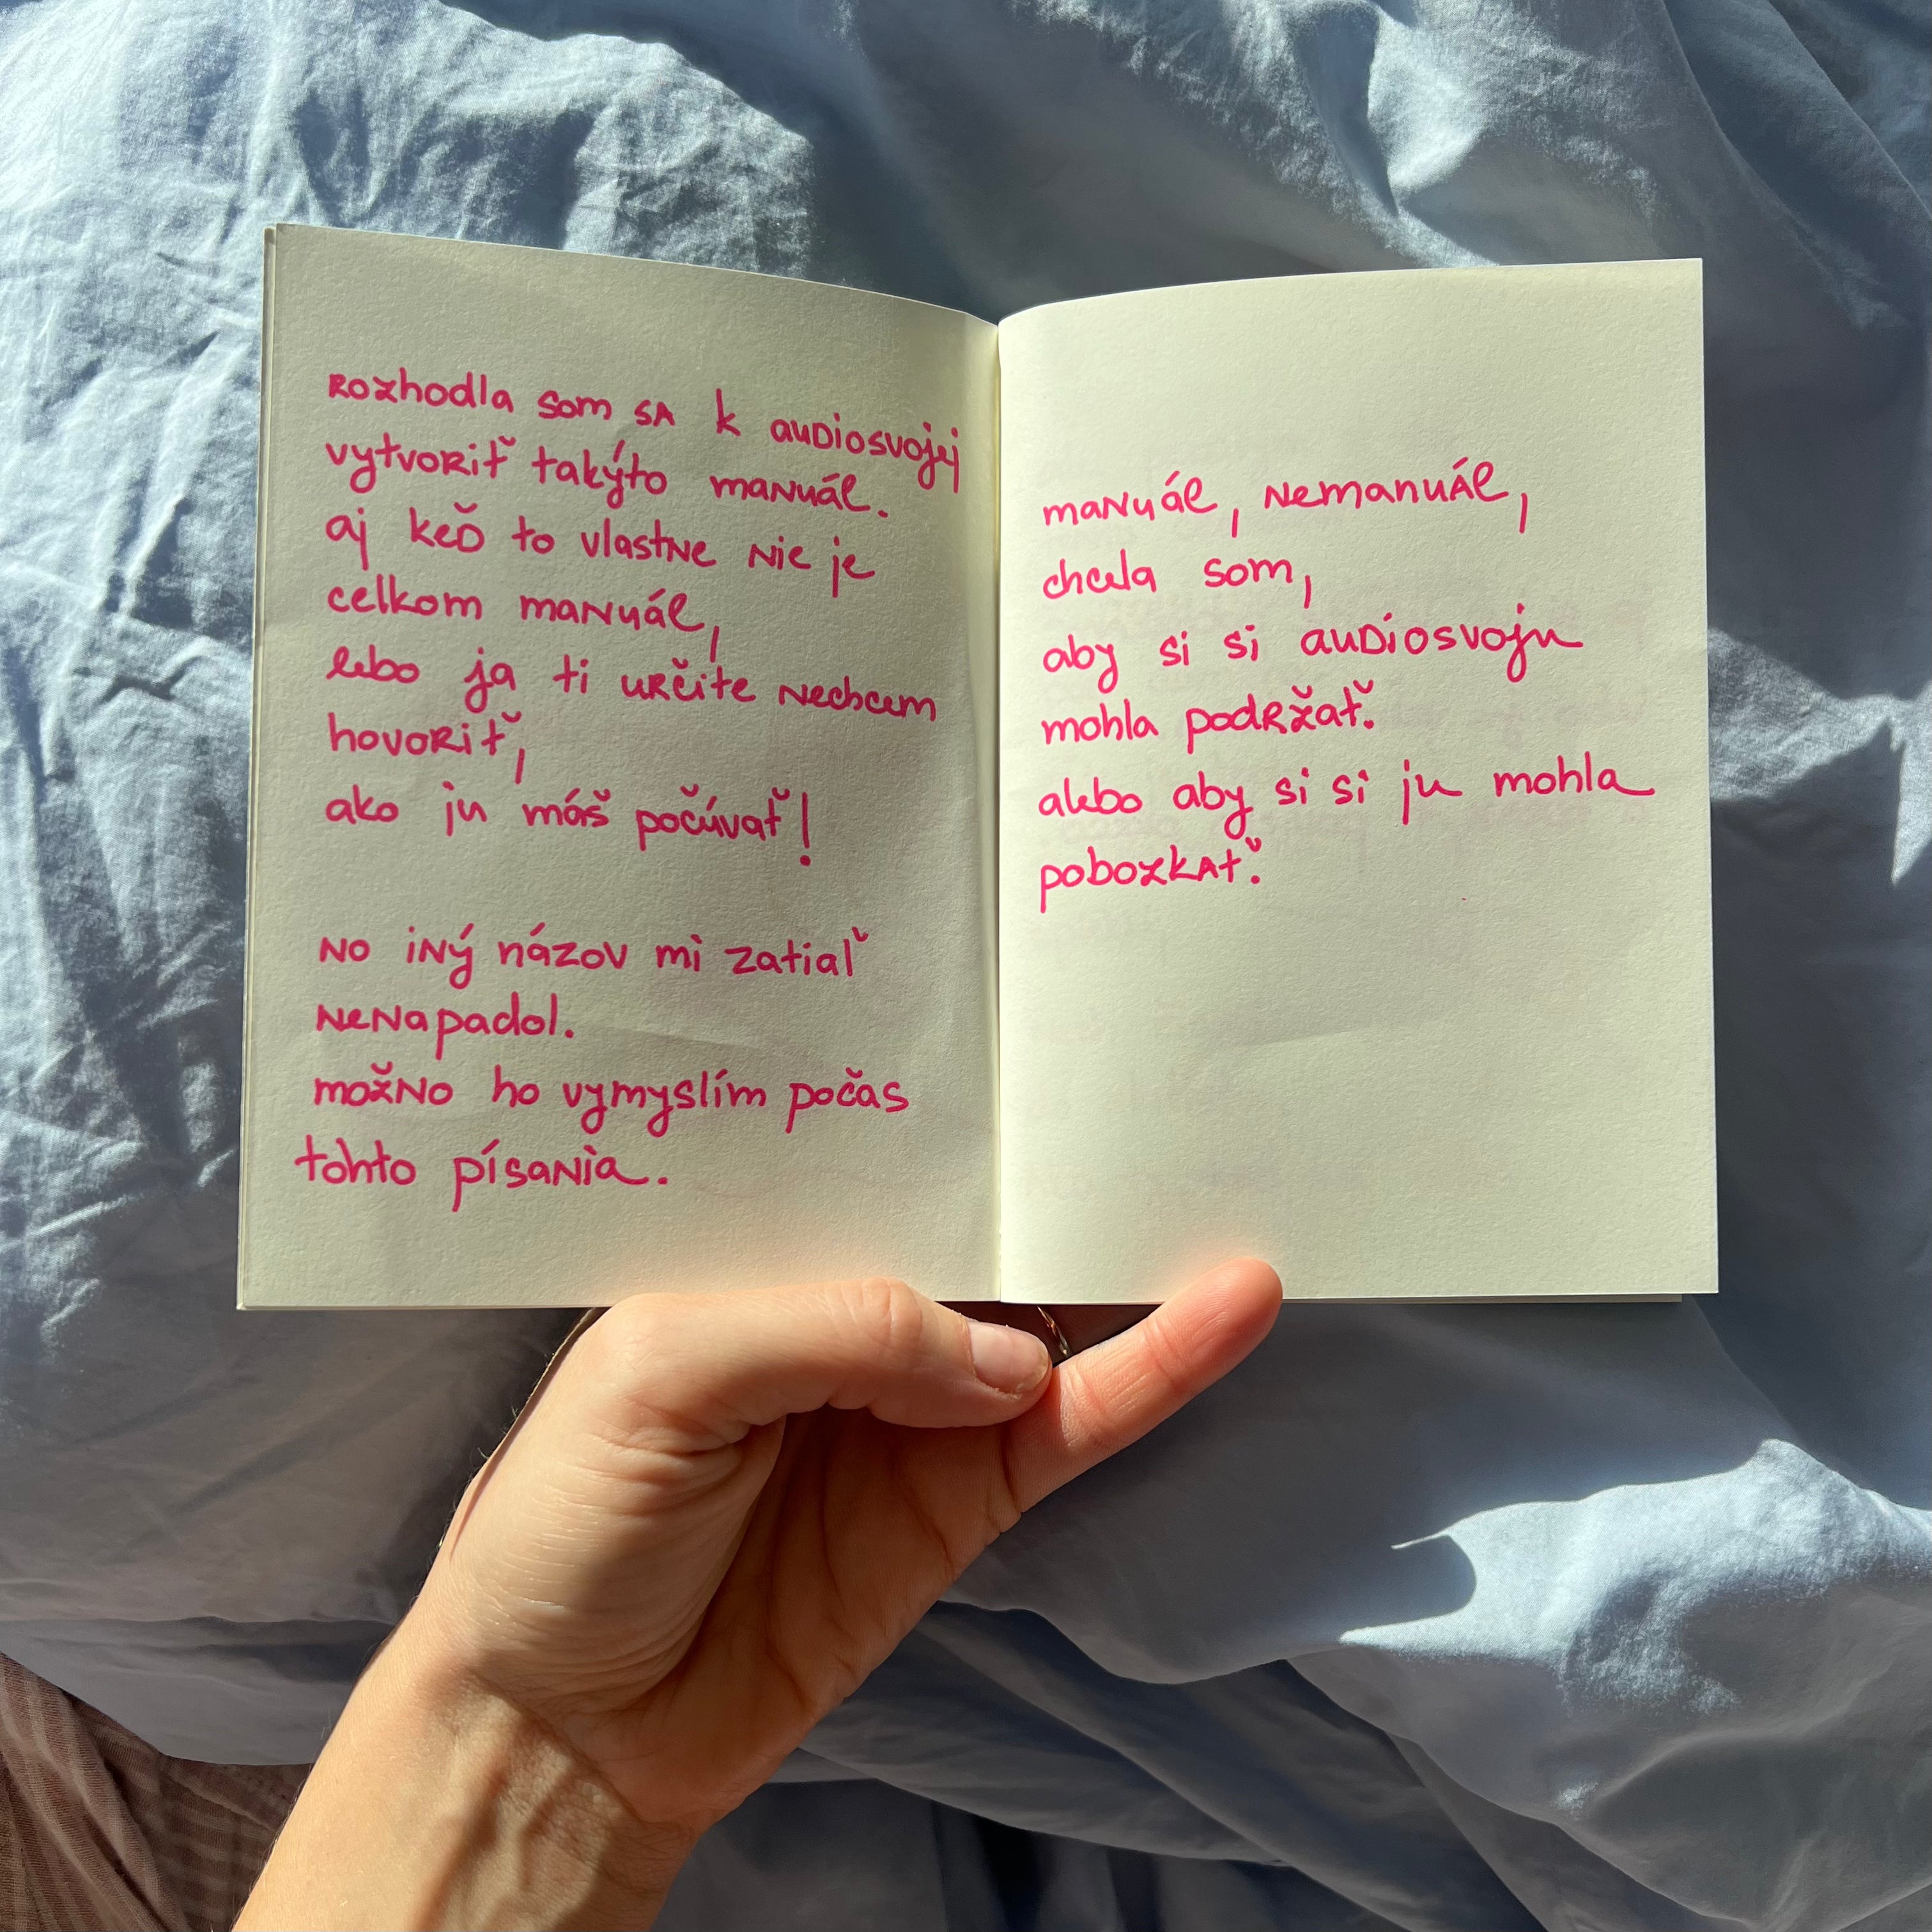 Rozhodla som sa k audiosvojej
vytvoriť takýto manuál.
aj keď to vlastne nie je
celkom manuál,
lebo ja ti určite nechcem
hovoriť,
ako ju máš počúvať!
no iný názov mi zatiaľ
nenapadol.
možno ho vymyslím počas
tohto písania.
manuál, nemanuál,
chcela som,
aby si si audiosvoju
mohla podržať.
alebo aby si si ju mohla
pobozkať.